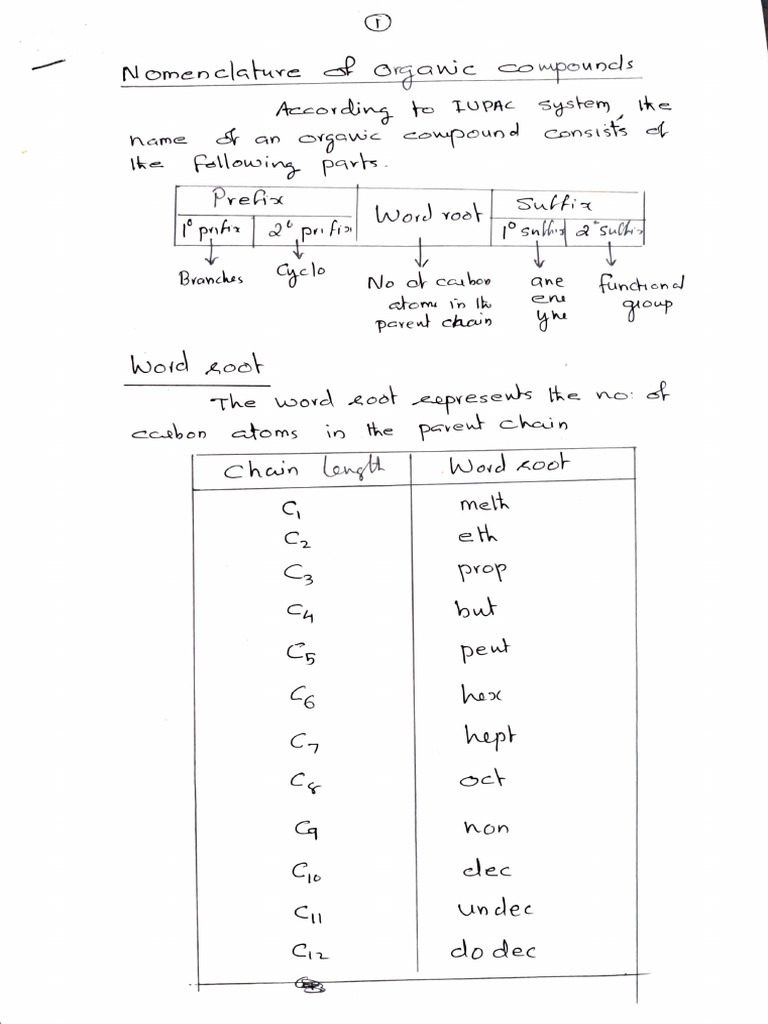 1
Nomenclature of organic compounds
According to IUPAC system, the
name of an organic compound consists of
the following parts.
Prefix Word root Suffix
1° prifix 2° prifix 1° suffix 2° suffix
Branches Cyclo No of carbon atoms in the parent chain ane ene yne functional group
Word root
The word root represents the no: of
carbon atoms in the parent chain
Chain length Word root
C1 meth
C2 eth
C3 prop
C4 but
C5 pent
C6 hex
C7 hept
C8 oct
C9 non
C10 dec
C11 undec
C12 do dec